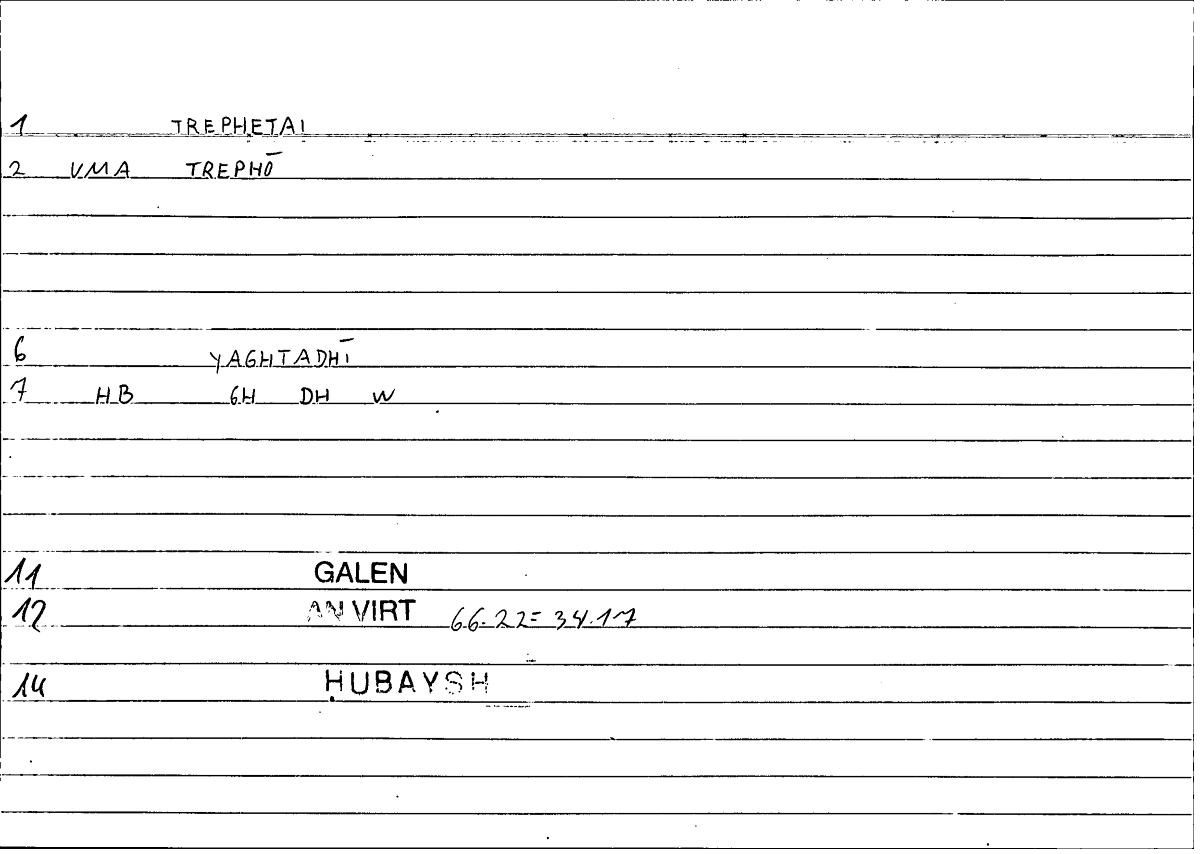 1 TREPHETAI
2 VMA TREPHŌ
6 YAGHTADHĪ
7 HB GH DH W
11 GALEN
12 AN VIRT 66.22=34.17
14 ḤUBAYSH